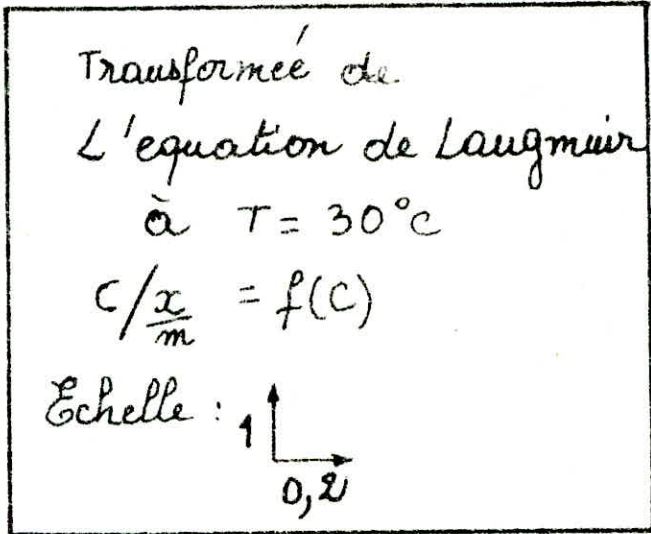 Transformeé de
L'equation de Laugmuir
à T = 30°C
C/x/m = f(C)
Echelle : 1
0,2